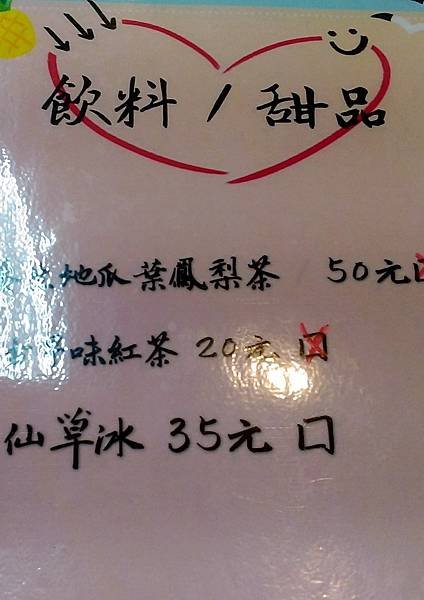 飲料 / 甜品
地瓜葉鳳梨茶 50元
味紅茶 20元 口
仙草冰 35元 口